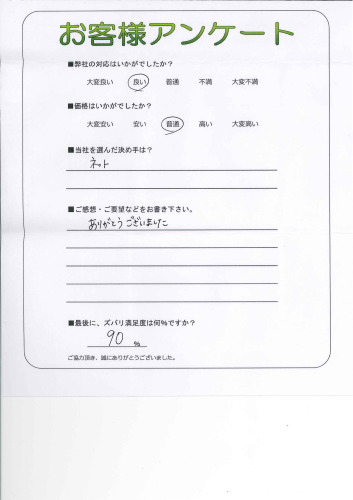 お客様アンケート
■弊社の対応はいかがでしたか?
大変良い 良い 普通 不満 大変不満
■価格はいかがでしたか?
大変安い 安い 普通 高い 大変高い
■当社を選んだ決め手は?
ネット
■ご感想・ご要望などをお書き下さい。
ありがとうございました
■最後に、ズバリ満足度は何%ですか?
90 %
ご協力頂き、誠にありがとうございました。